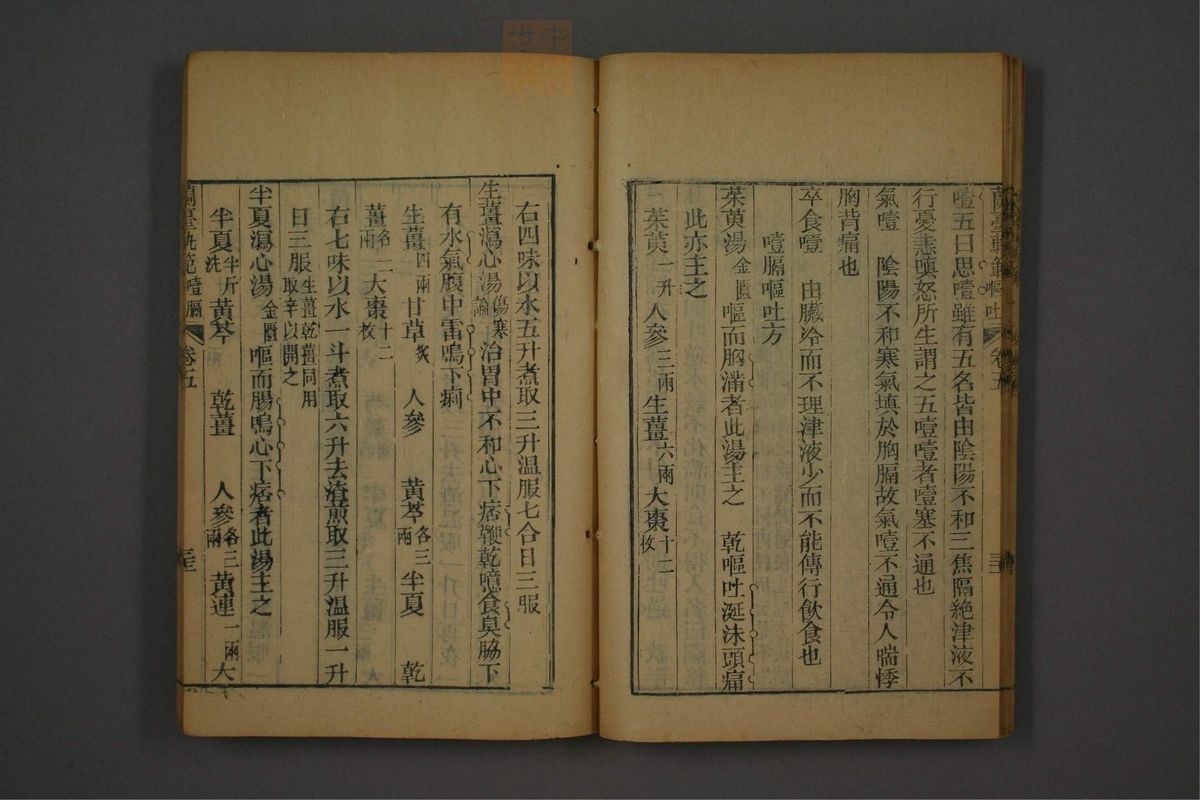 蘭臺軌範嘔吐 卷五
噎五曰思噎雖有五名皆由陰陽不和三焦隔絶津液不
行憂恚嗔怒所生謂之五噎噎者噎塞不通也
氣噎 陰陽不和寒氣填於胸膈故氣噎不通令人喘悸
胸背痛也
卒食噎 由臟冷而不理津液少而不能傳行飲食也
噎膈嘔吐方
茱萸湯金匱 嘔而胸滿者此湯主之 乾嘔吐涎沫頭痛
此亦主之
茱萸一升 人參三兩 生薑六兩 大棗十二枚
右四味以水五升煮取三升温服七合日三服
生薑瀉心湯傷寒論 治胃中不和心下痞鞕乾噫食臭脇下
有水氣腹中雷鳴下痢
生薑四兩 甘草炙 人參 黃芩各三兩 半夏 乾
薑各二兩 大棗十二枚
右七味以水一斗煮取六升去渣煎取三升温服一升
日三服生薑乾薑同用取辛以開之
半夏瀉心湯金匱 嘔而腸鳴心下痞者此湯主之
半夏半斤洗 黃芩 乾薑 人參各三兩 黃連一兩 大
蘭臺軌範噎膈 卷五